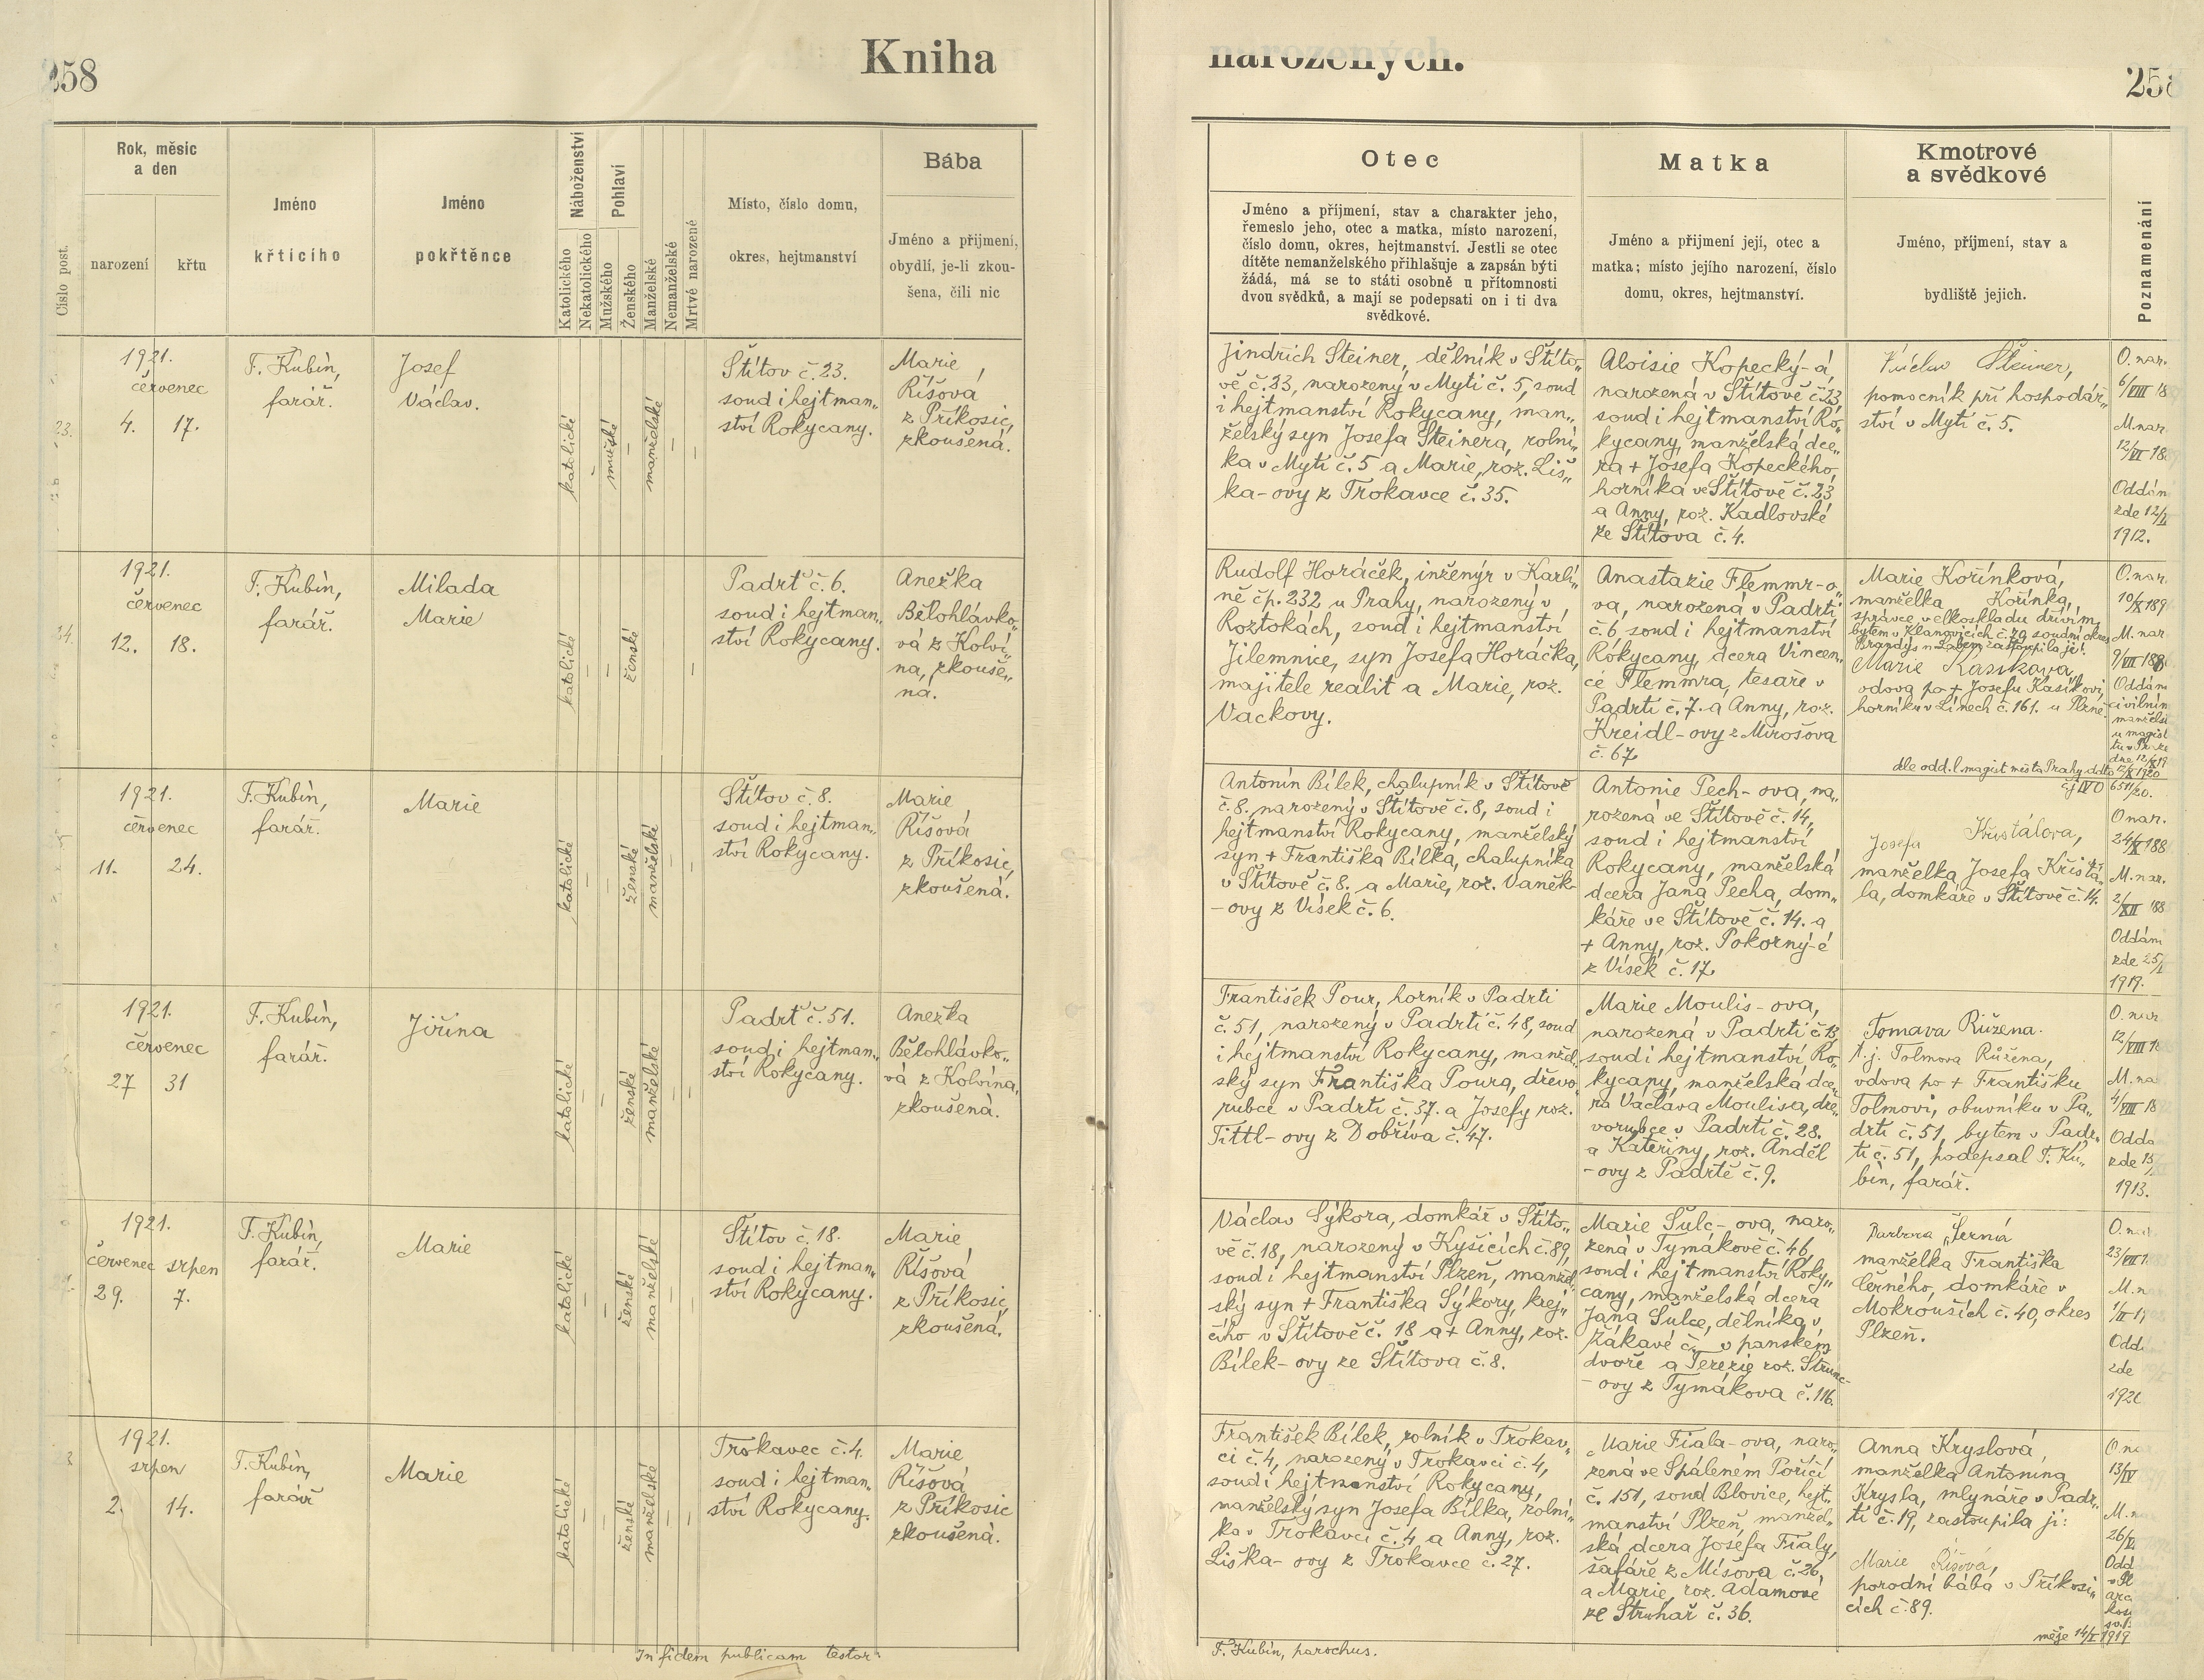 258
Kniha
Rok, měsíc
a den
narození
křtu
Číslo post.
Jméno
křtícího
Jméno
pokřtěnce
Náboženství
Katolického
Nekatolického
Pohlaví
Mužského
Ženského
Manželské
Nemanželské
Mrtvě narozené
Místo, číslo domu,
okres, hejtmanství
Bába
Jméno a přijmení,
obydlí, je-li zkou-
šena, čili nic
1921.
červenec
4. 17.
F. Kubín,
farář.
Josef
Václav.
katolické
mužské
manželské
Štítov č. 23.
soud i hejtman„
ství Rokycany.
Marie
Říšová
z Příkosic,
zkoušená.
1921.
červenec
12. 18.
F. Kubín,
farář.
Milada
Marie
katolické
ženské
Padrť č. 6.
soud i hejtman„
ství Rokycany.
Anežka
Bělohlávko„
vá z Kolví„
na, zkouše„
ná.
1921.
červenec
11. 24.
F. Kubín,
farář.
Marie
katolické
ženské
manželské
Štítov č. 8.
soud i hejtman„
ství Rokycany.
Marie
Říšová
z Příkosic,
zkoušená.
1921.
červenec
27 31
F. Kubín,
farář.
Jiřina
katolické
ženské
manželské
Padrť č. 51.
soud i hejtman„
ství Rokycany.
Anežka
Bělohlávko„
vá z Kolvína,
zkoušená.
1921.
červenec srpen
29. 7.
F. Kubín,
farář.
Marie
katolické
ženské
manželské
Štítov č. 18.
soud i hejtman„
ství Rokycany.
Marie
Říšová
z Příkosic,
zkoušená.
1921.
srpen
2. 14.
F. Kubín,
farář
Marie
katolické
ženské
manželské
Trokavec č. 4.
soud i hejtman„
ství Rokycany.
Marie
Říšová
z Příkosic
zkoušená.
In fidem publicam testor:
narozených.
Otec
Jméno a příjmení, stav a charakter jeho,
řemeslo jeho, otec a matka, místo narození,
číslo domu, okres, hejtmanství. Jestli se otec
dítěte nemanželského přihlašuje a zapsán býti
žádá, má se to státi osobně u přítomnosti
dvou svědků, a mají se podepsati on i ti dva
svědkové.
Matka
Jméno a přijmení její, otec a
matka; místo jejího narození, číslo
domu, okres, hejtmanství.
Kmotrové
a svědkové
Jméno, příjmení, stav a
bydliště jejich.
Poznamenání
Jindřich Steiner, dělník v Štíto„
vě č. 23, narozený v Mýti č. 5, soud
i hejtmanství Rokycany, man„
želský syn Josefa Steinera, rolní„
ka v Mýti č. 5 a Marie, roz. Liš„
ka-ovy z Trokavce č. 35.
Aloisie Kopecký-á,
narozená v Štítově č. 23
soud i hejtmanství Ro„
kycany, manželská dce„
ra + Josefa Kopeckého,
horníka ve Štítově č. 23
a Anny, roz. Kadlovské
ze Štítova č. 4.
Václav Steiner,
pomocník při hospodář„
ství v Mýti č. 5.
O. nar.
6/VIII 18
M. nar.
12/VI 18
Oddán
zde 12/
1912.
Rudolf Horáček, inženýr v Karlí„
ně čp. 232 u Prahy, narozený v
Roztokách, soud i hejtmanství
Jilemnice, syn Josefa Horáčka,
majitele realit a Marie, roz.
Vackovy.
Anastazie Flemmr-o„
va, narozená v Padrti
č. 6 soud i hejtmanství
Rokycany, dcera Vincen„
ce Flemmra, tesaře v
Padrti č. 7. a Anny, roz.
Kreidl-ovy z Mirošova
č. 67
Marie Kořínková,
manželka Kořínka,
správce velkoskladu dříví m,
bytem v Klánovicích č. 79 soudní okres
Brandýs n Labem zastoupila je:
Marie Kasíková,
vdova po + Josefu Kasíkovi,
horníku v Línech č. 161. u Plzně.
O. nar.
10/X 189
M. nar.
9/VII 188
Oddán
civilním
manžels
u magist
dle odd. l. magist. města Prahy ddto 12/X 1920
čj IV O 6511/20.
Antonín Bílek, chalupník v Štítově
č. 8. narozený v Štítově č. 8, soud i
hejtmanství Rokycany, manželský
syn + Františka Bílka, chalupníka
v Štítově č. 8. a Marie, roz. Vaněk-
-ovy z Vísek č. 6.
Antonie Pech-ova, na„
rozená ve Štítově č. 14,
soud i hejtmanství
Rokycany, manželská
dcera Jana Pecha, dom„
káře ve Štítově č. 14. a
+ Anny, roz. Pokorný-é
z Vísek č. 17
Josefa Křištálova,
manželka Josefa Křišťá„
la, domkáře v Štítově č. 14.
O nar.
24/X 188
M. nar.
2/XII 188
Oddám
zde 25/
1919.
František Pour, horník v Padrti
č. 51, narozený v Padrti č. 48, soud
i hejtmanství Rokycany, manžel„
ský syn Františka Poura, dřevo„
rubce v Padrti č. 37. a Josefy roz.
Tittl-ovy z Dobříva č. 47.
Marie Moulis-ova,
narozená v Padrti č. 13,
soud i hejtmanství Ro„
kycany, manželská dce„
ra Václava Moulisa, dře„
vorubce v Padrti č. 28.
a Kateřiny, roz. Anděl
-ovy z Padrtě č. 9.
Tomava Růžena.
t. j. Tolmova Růžena,
vdova po + Františku
Tolmovi, obuvníku v Pa„
drti č. 51, bytem v Padr„
ti č. 51, podepsal F. Ku„
bín, farář.
O. nar.
12/VIII 18
M. na
4/VIII 18
Odda
zde 15/
1913.
Václav Sýkora, domkář v Štíto„
vě č. 18, narozený v Kyšicích č. 89,
soud i hejtmanství Plzeň, manžel„
ský syn + Františka Sýkory, krej„
čího v Štítově č. 18 a + Anny, roz.
Bílek-ovy ze Štítova č. 8.
Marie Šulc-ova, naro„
zená v Tymákově č. 46,
soud i hejtmanství Roky„
cany, manželská dcera
Jana Šulce, dělníka v
Žákavé č. v panském
dvoře a Terezie roz. Strunc-
-ovy z Tymákova č. 116.
Barbora Černá
manželka Františka
Černého, domkáře v
Mokrouších č. 40, okres
Plzeň.
O. na
23/VII 1
M. n
1/II 1
Odd
zde
1920
František Bílek, rolník v Trokav„
ci č. 4, narozený v Trokavci č. 4,
soud i hejtmanství Rokycany,
manželský syn Josefa Bílka, rolní„
ka v Trokavci č. 4 a Anny, roz.
Liška-ovy z Trokavce č. 27.
Marie Fiala-ova, naro„
zená ve Spáleném Poříčí
č. 151, soud Blovice, hejt„
manství Plzeň, manžel„
ská dcera Josefa Fialy,
šafáře z Míšova č. 26,
a Marie, roz. Adamové
ze Struhař č. 36.
Anna Kryslová,
manželka Antonína
Krysla, mlynáře v Padr„
ti č. 19, zastoupila ji:
Marie Říšová,
porodní bába v Příkosi„
cích č. 89.
O. na
13/IV
M. n
26/V
Odd
v Pl
měje 14/I 1919
F. Kubín, parochus.